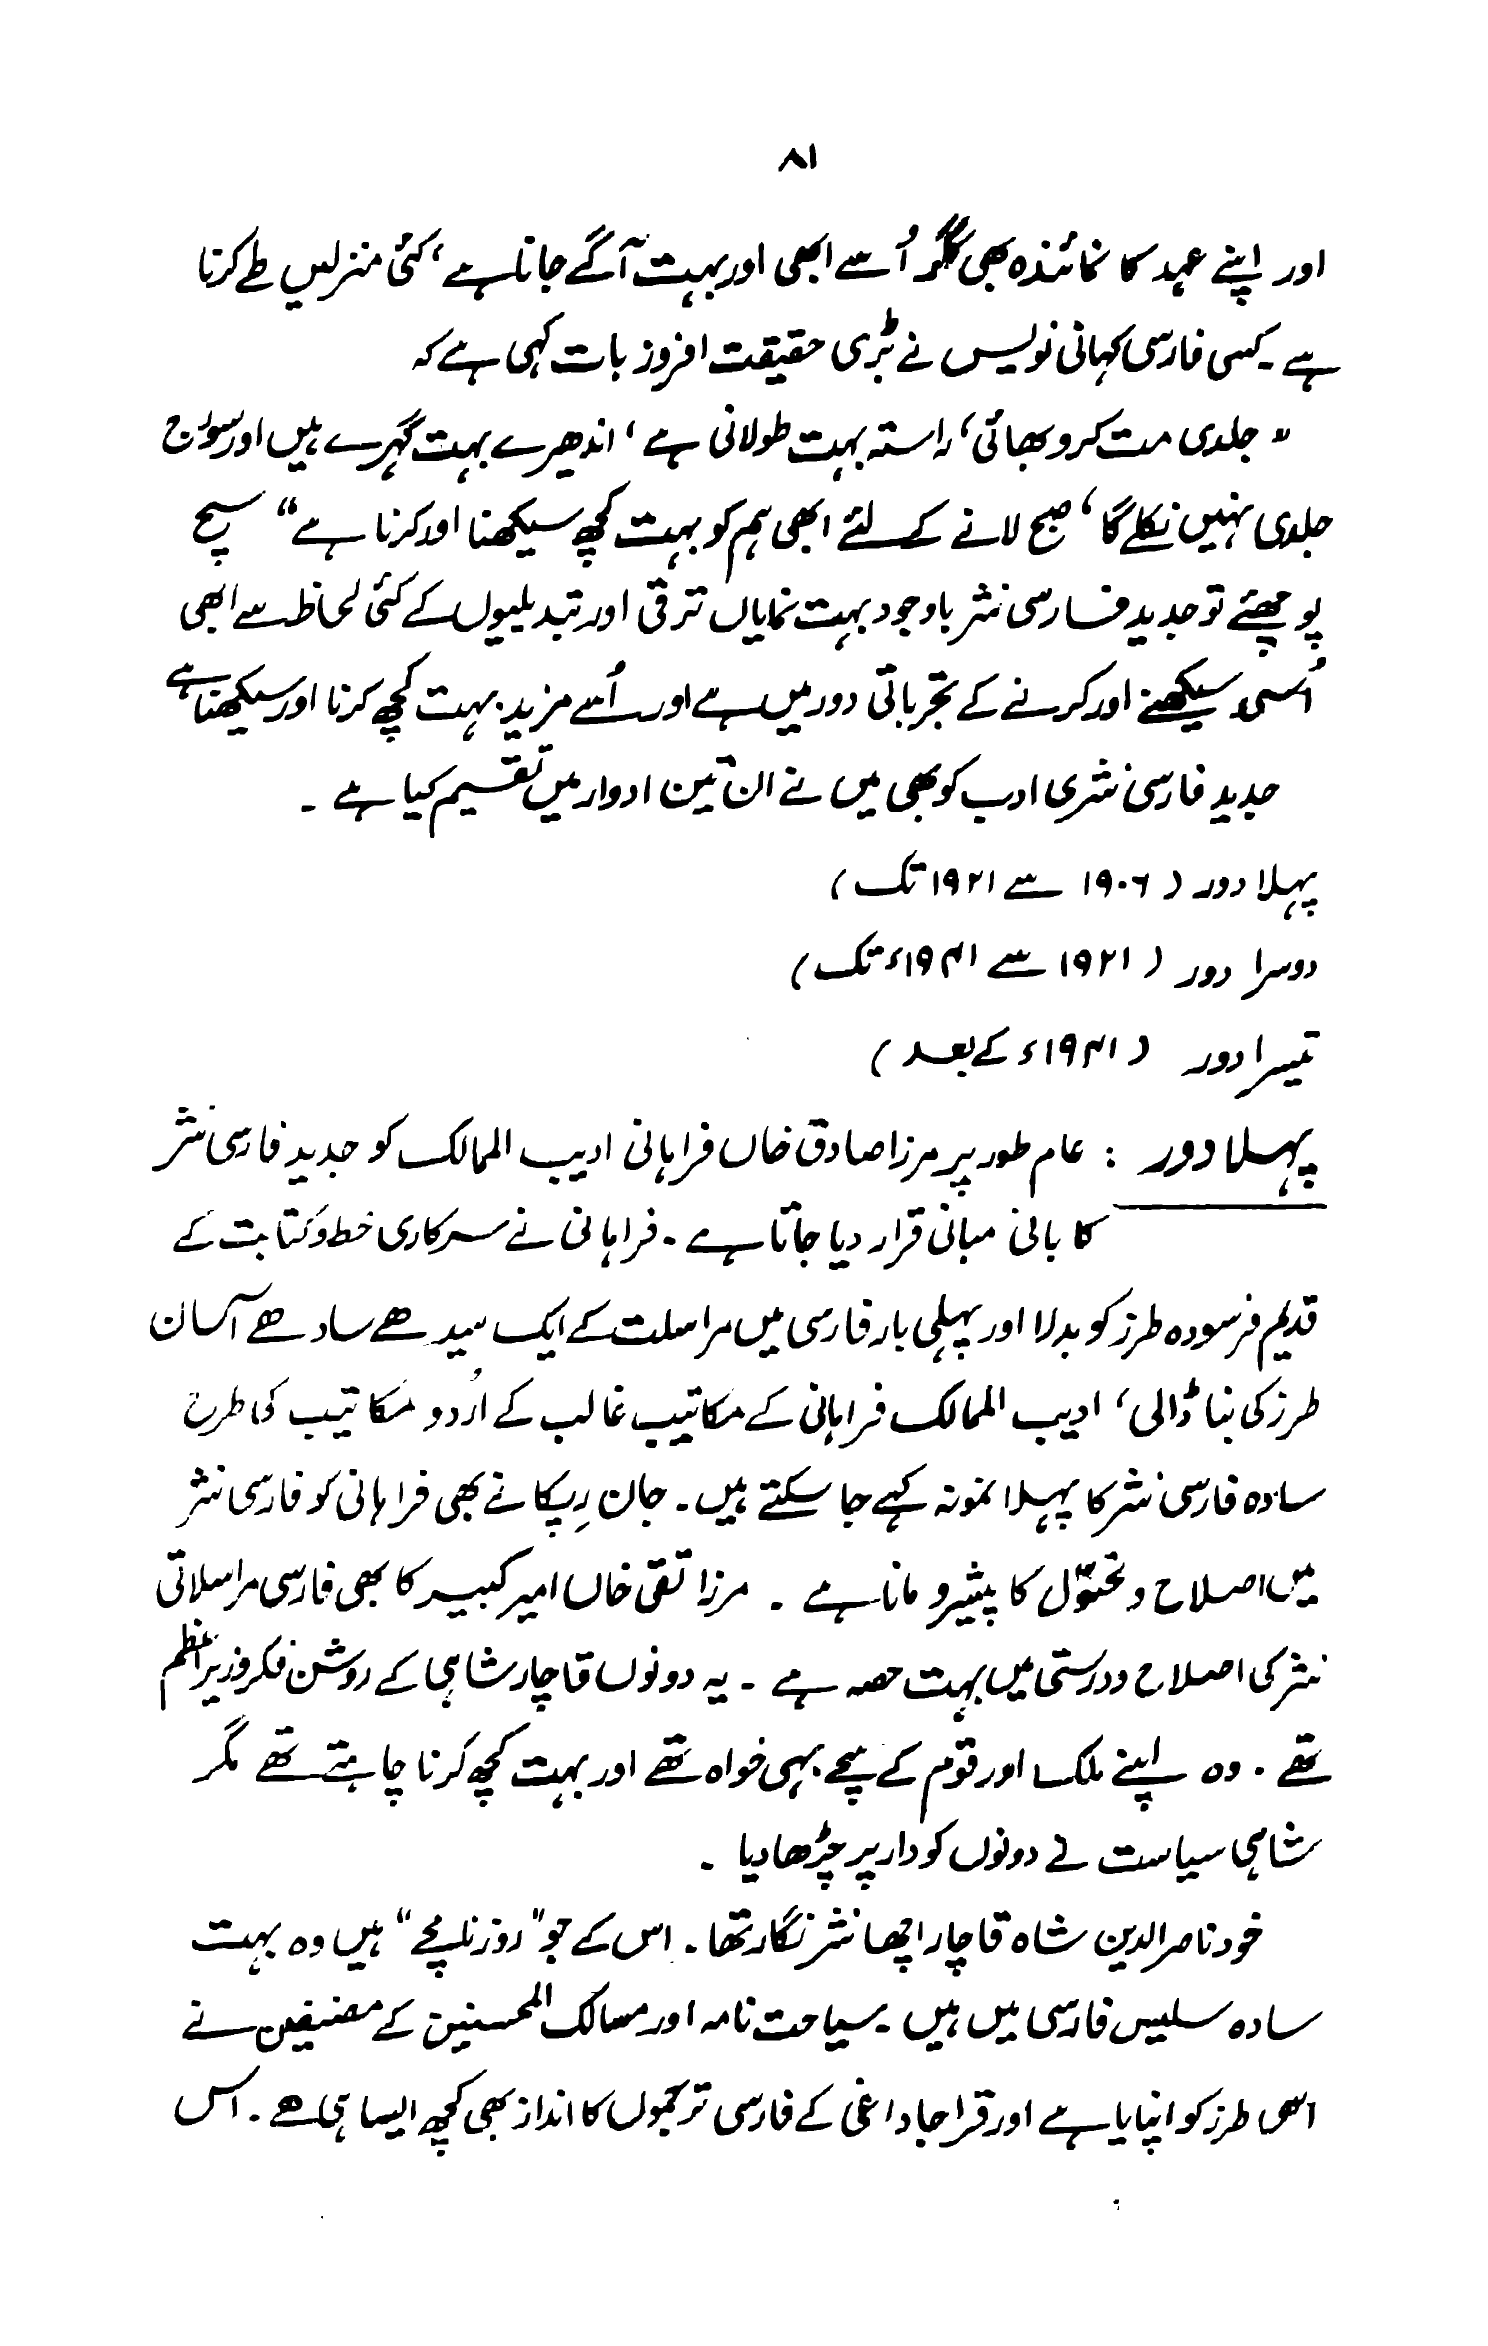 ۸۱
اور اپنے عہد کا نمائندہ بھی مگر اُسے ابھی اور بہت آگے جانا ہے، کئی منزلیں طے کرنا
ہے۔ کسی فارسی کہانی نویس نے بڑی حقیقت افروز بات کہی ہے کہ
"جلدی مت کرو بھائی، راستہ بہت طولانی ہے، اندھیرے بہت گہرے ہیں اور سورج
جلدی نہیں نکلے گا، صبح لانے کے لئے ابھی ہم کو بہت کچھ سیکھنا اور کرنا ہے" سچ
پوچھئے تو جدید فارسی نثر باوجود بہت نمایاں ترقی اور تبدیلیوں کے کئی لحاظ سے ابھی
اُسی سیکھنے اور کرنے کے تجرباتی دور میں ہے اور اُسے مزید بہت کچھ کرنا اور سیکھنا ہے
جدید فارسی نثری ادب کو بھی میں نے ان تین ادوار میں تقسیم کیا ہے۔
پہلا دور (۱۹۰۶ سے ۱۹۲۱ تک)
دوسرا دور (۱۹۲۱ سے ۱۹۴۱ء تک)
تیسرا دور (۱۹۴۱ء کے بعد)
پہلا دور : عام طور پر مرزا صادق خاں فراہانی ادیب الممالک کو جدید فارسی نثر
کا بانی مبانی قرار دیا جاتا ہے۔ فراہانی نے سرکاری خط و کتابت کے
قدیم فرسودہ طرز کو بدلا اور پہلی بار فارسی میں مراسلت کے ایک سیدھے سادھے آسان
طرز کی بنا ڈالی، ادیب الممالک فراہانی کے مکاتیب غالب کے اُردو مکاتیب کی طرح
سادہ فارسی نثر کا پہلا نمونہ کہے جا سکتے ہیں۔ جان رپکا نے بھی فراہانی کو فارسی نثر
میں اصلاح و تحوّل کا پیشرو مانا ہے۔ مرزا تقی خاں امیر کبیر کا بھی فارسی مراسلاتی
نثر کی اصلاح و درستی میں بہت حصہ ہے۔ یہ دونوں قاچار شاہی کے روشن فکر وزیر اعظم
تھے۔ وہ اپنے ملک اور قوم کے سچے بہی خواہ تھے اور بہت کچھ کرنا چاہتے تھے مگر
شاہی سیاست نے دونوں کو دار پر چڑھا دیا۔
خود ناصرالدین شاہ قاچار اچھا نثر نگار تھا۔ اس کے جو "روزنامچے" ہیں وہ بہت
سادہ سلیس فارسی میں ہیں۔ سیاحت نامہ اور مسالک المحسنین کے مصنیفین نے
اسی طرز کو اپنایا ہے اور قراجا داغی کے فارسی ترجموں کا انداز بھی کچھ ایسا ہی ہے۔ اس